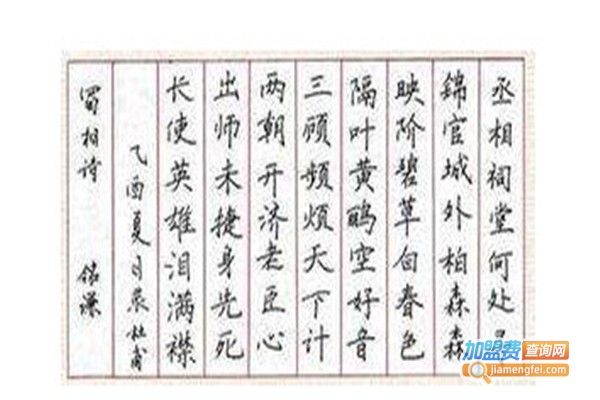 丞相祠堂何处
錦官城外柏森森
映阶碧草自春色
隔叶黄鹂空好音
三顾頻烦天下计
两朝开济老臣心
出师未捷身先死
长使英雄泪满襟
乙酉夏月录杜甫
蜀相诗 铭谦
加盟费查询网
www.jiamengfei.com